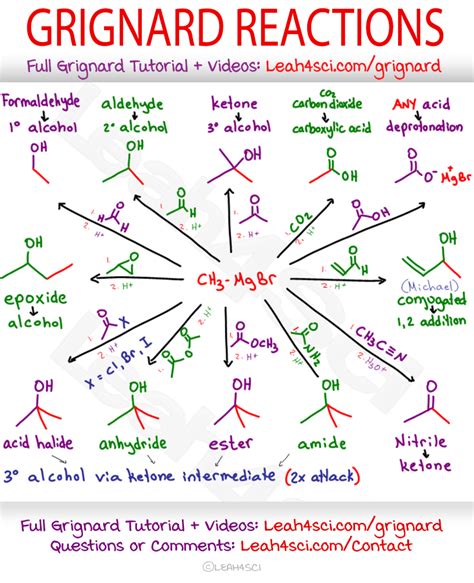 GRIGNARD REACTIONS
Full Grignard Tutorial + Videos: Leah4sci.com/grignard
Formaldehyde
1° alcohol
OH
aldehyde
2° alcohol
OH
ketone
3° alcohol
OH
CO2
carbon dioxide
carboxylic acid
O
OH
ANY acid
deprotonation
O
O⁻ +MgBr
1.
O
H H
2. H+
1.
O
H
2. H+
1.
O
2. H+
1. CO2
2. H+
O
OH
OH
epoxide
alcohol
1.
O
2. H+
CH3-MgBr
1.
O
H
2. H+
OH
(Michael)
conjugated
1,2 addition
O
X
1.
2. H+
X = Cl, Br, I
O
O
O
1.
2. H+
1.
O
OCH3
2. H+
1.
O
NH2
2. H+
1. CH3C≡N
2. H3O+
OH
acid halide
OH
anhydride
OH
ester
OH
amide
O
Nitrile
ketone
3° alcohol via ketone intermediate (2x attack)
Full Grignard Tutorial + Videos: Leah4sci.com/grignard
Questions or Comments: Leah4sci.com/Contact
©LEAH4SCI